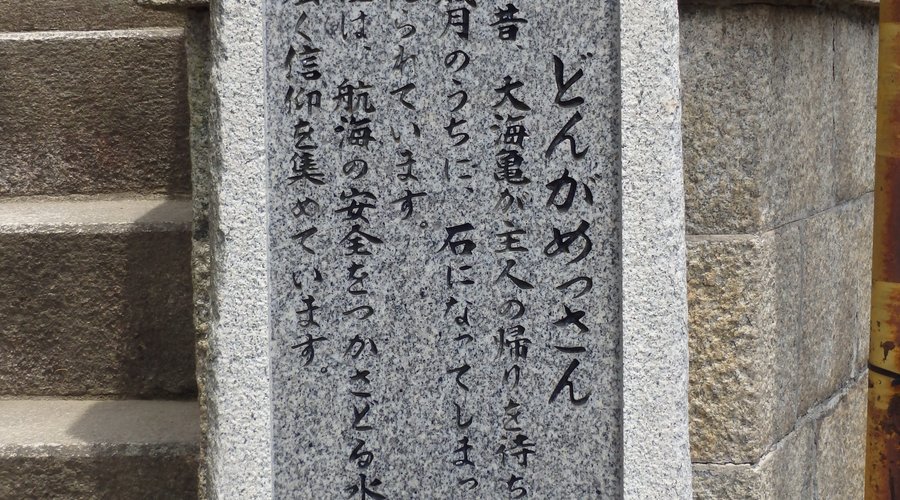 どんがめっさん
昔、大海亀が主人の帰りを待ち
月のうちに、石になってしまっ
われています。
は、航海の安全をつかさどる水
く信仰を集めています。